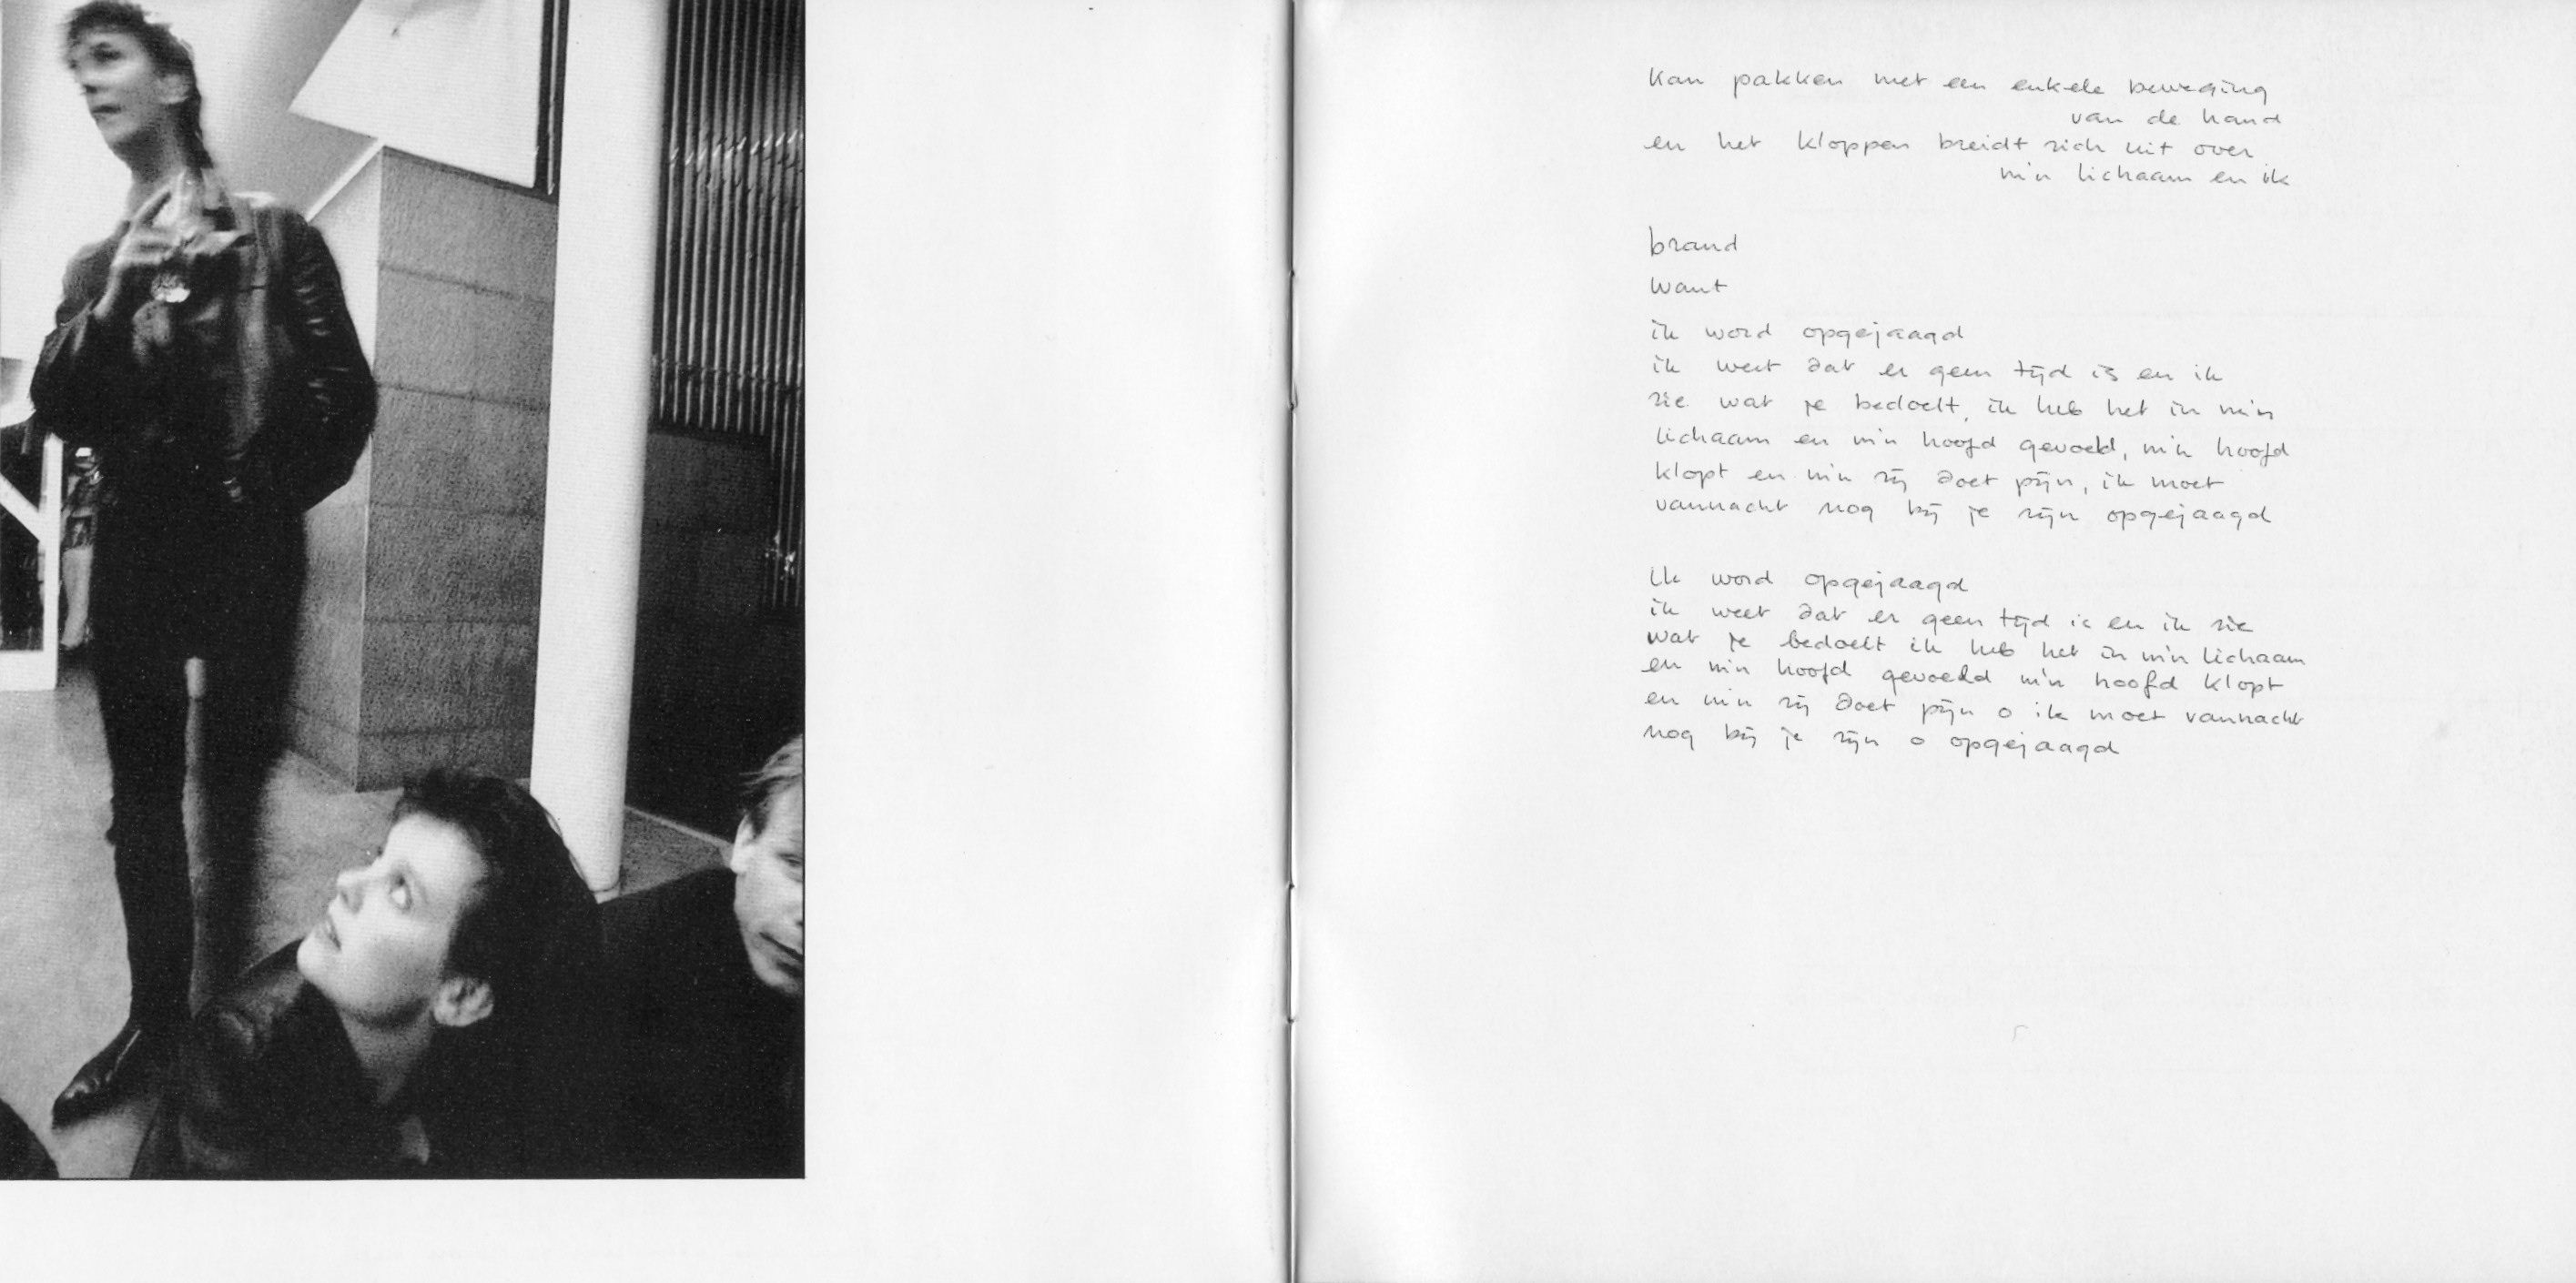 kan pakken met een enkele beweging
van de hand
en het kloppen breidt zich uit over
m'n lichaam en ik
brand
want
ik word opgejaagd
ik weet dat er geen tijd is en ik
zie wat je bedoelt, ik heb het in m'n
lichaam en m'n hoofd gevoeld, m'n hoofd
klopt en m'n zij doet pijn, ik moet
vannacht nog bij je zijn opgejaagd
ik word opgejaagd
ik weet dat er geen tijd is en ik zie
wat je bedoelt ik heb het in m'n lichaam
en m'n hoofd gevoeld m'n hoofd klopt
en m'n zij doet pijn o ik moet vannacht
nog bij je zijn o opgejaagd